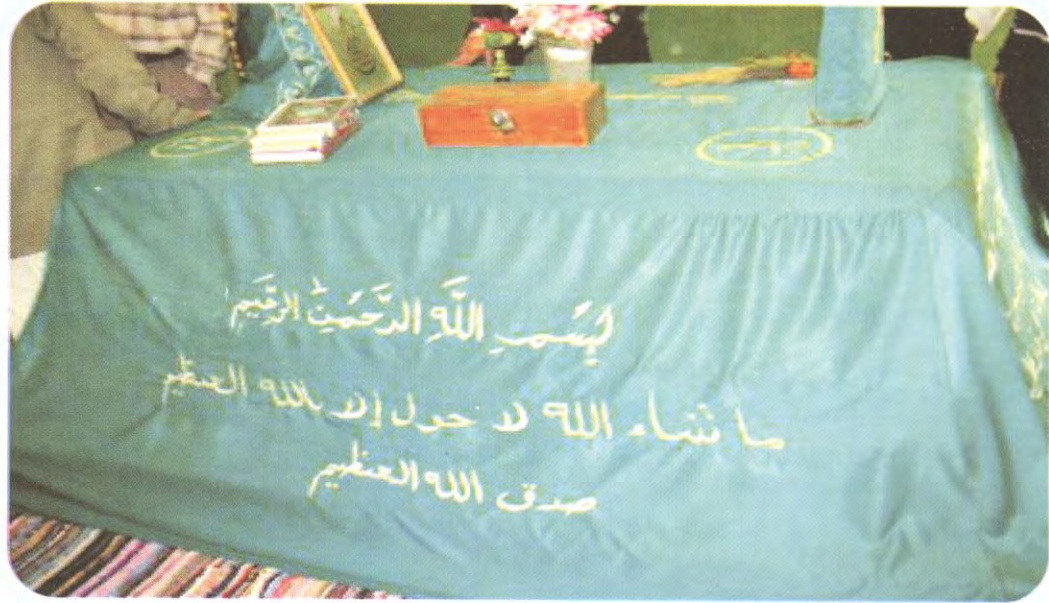 بِسْمِ اللَّهِ الرَّحْمَنِ الرَّحِيمِ
ما شاء الله لا حول إلا بالله العظيم
صدق الله العظيم